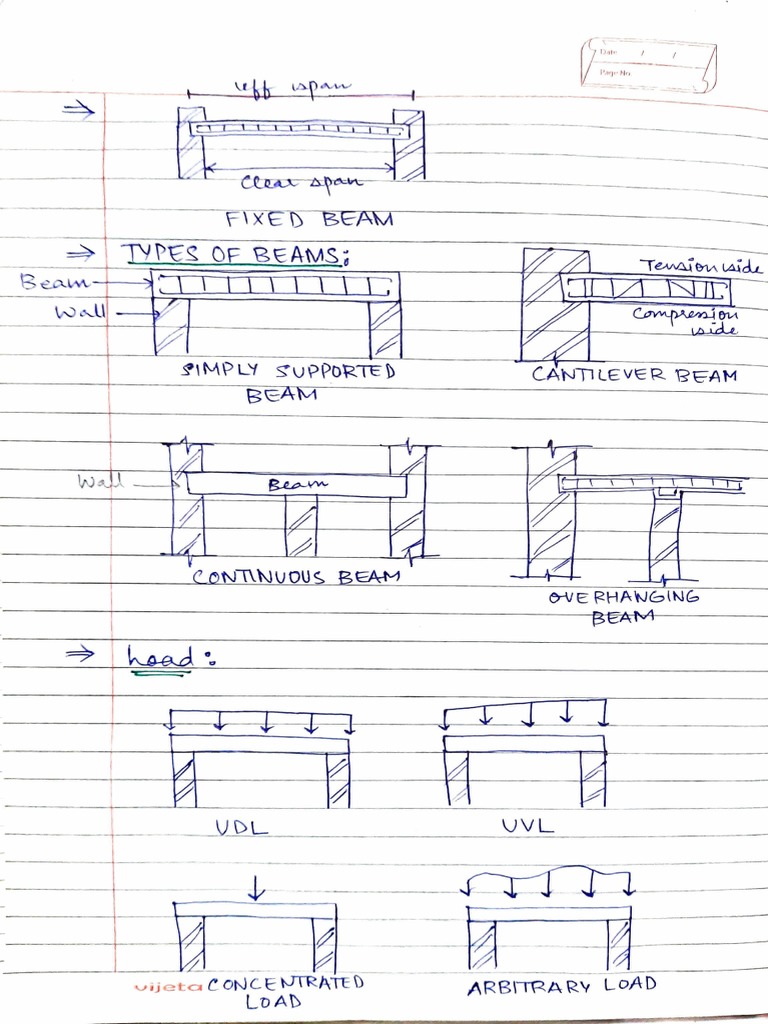 Date / /
Page No.
⇒
eff span
clear span
FIXED BEAM
⇒ TYPES OF BEAMS:
Beam
Wall
SIMPLY SUPPORTED
BEAM
Tension side
Compression
side
CANTILEVER BEAM
Wall
Beam
CONTINUOUS BEAM
OVERHANGING
BEAM
⇒ Load:
UDL
UVL
vijeta CONCENTRATED
LOAD
ARBITRARY LOAD